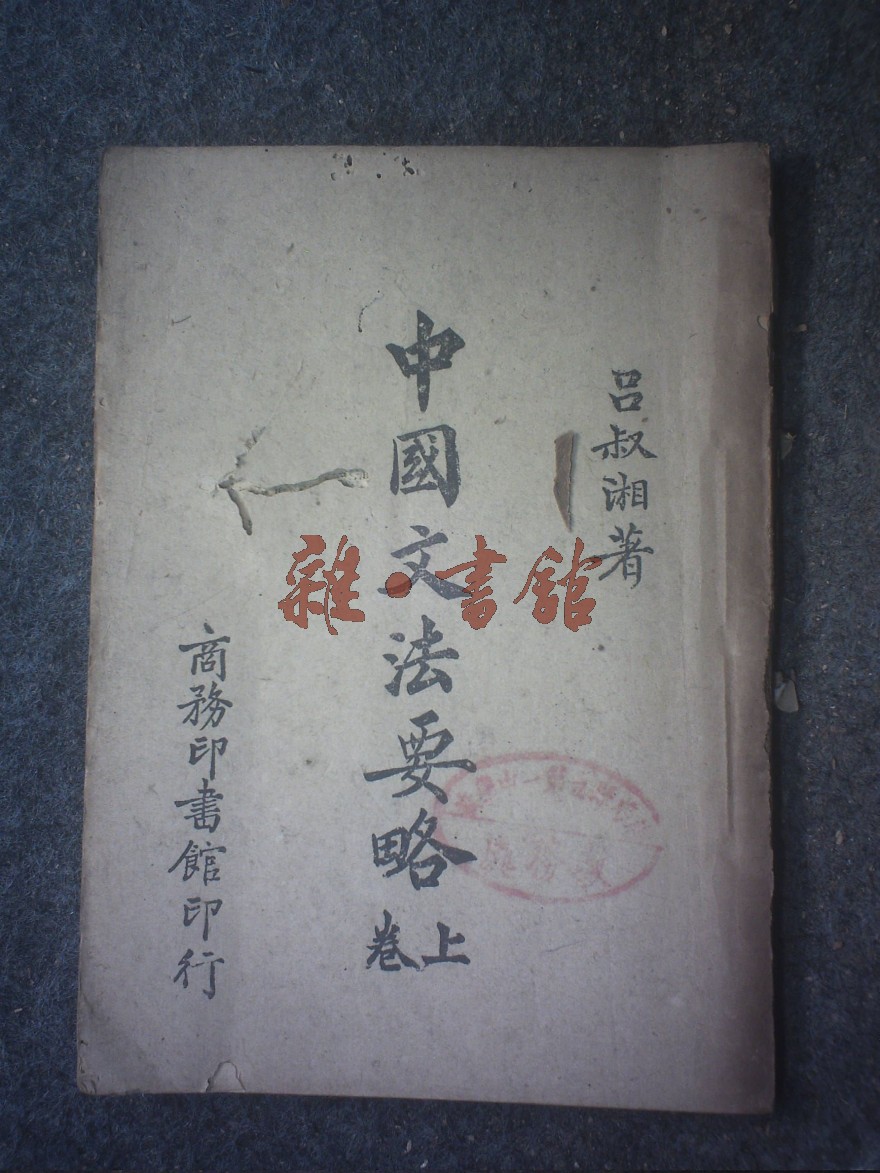 呂叔湘著
中國文法要略
上卷
商務印書館印行
雜·書館